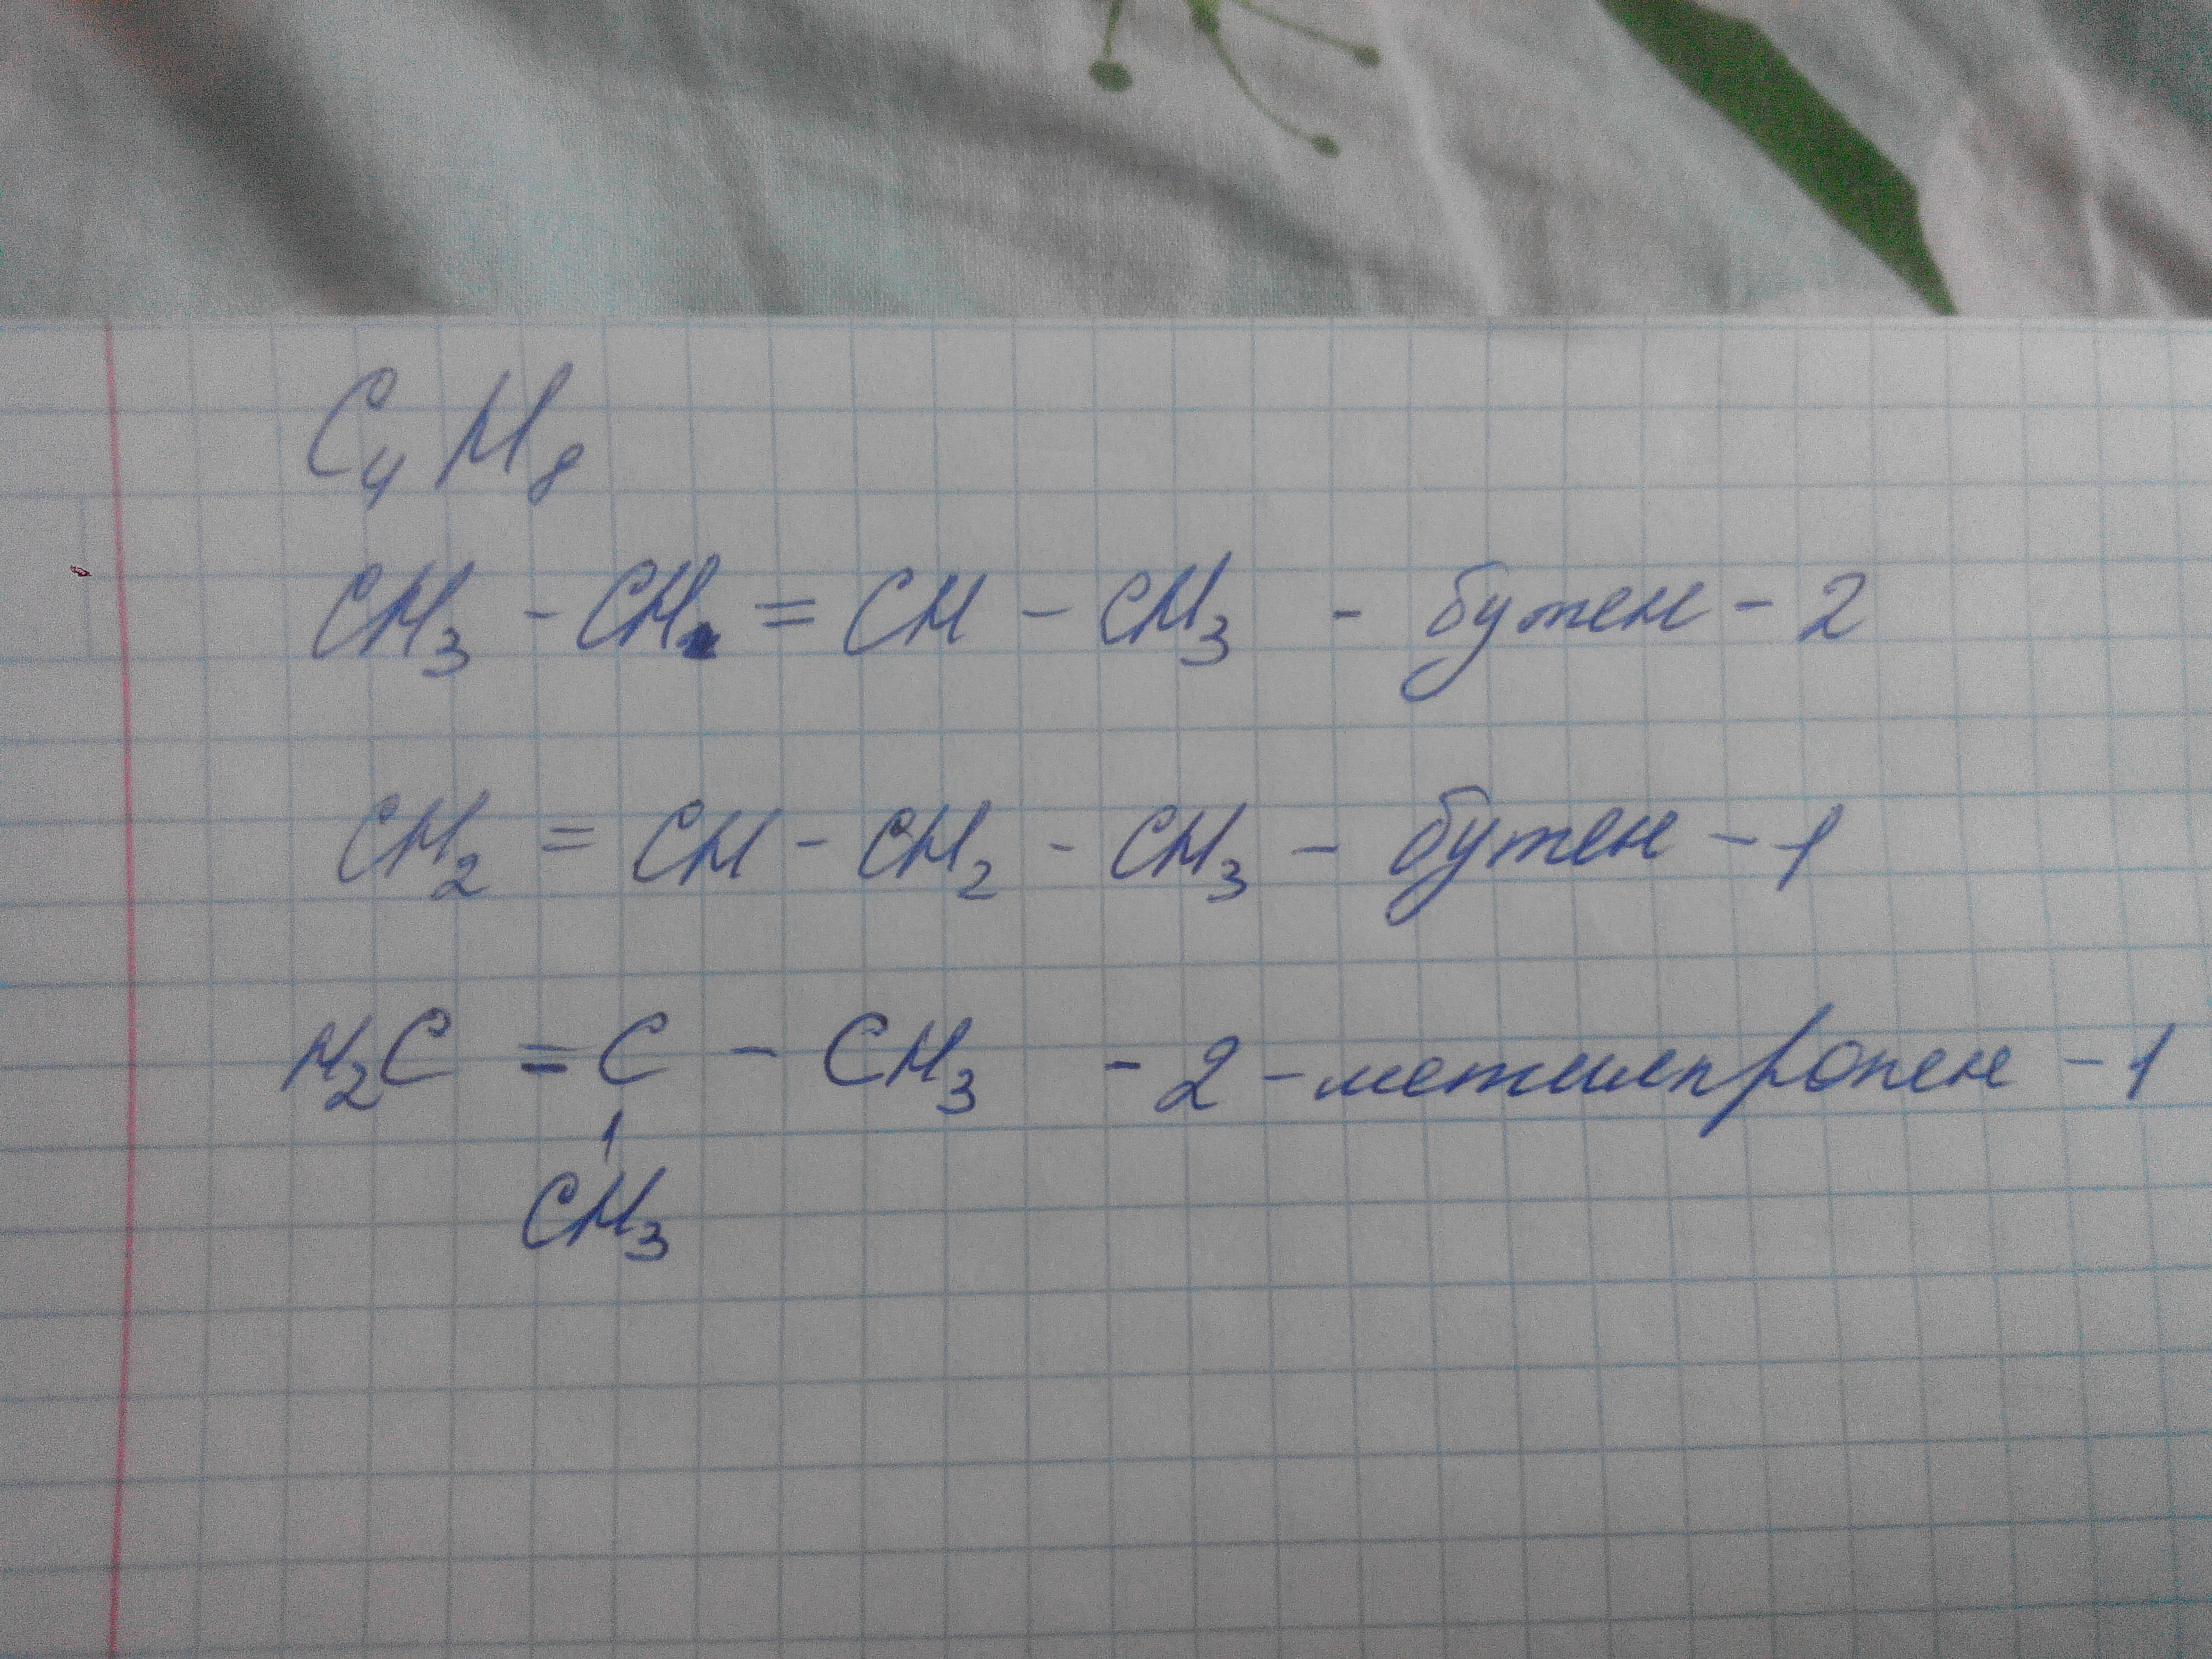 C₄H₈
CH₃ - CH = CH - CH₃ - бутен - 2
CH₂ = CH - CH₂ - CH₃ - бутен - 1
H₂C = C - CH₃ - 2 - метилпропен - 1
CH₃